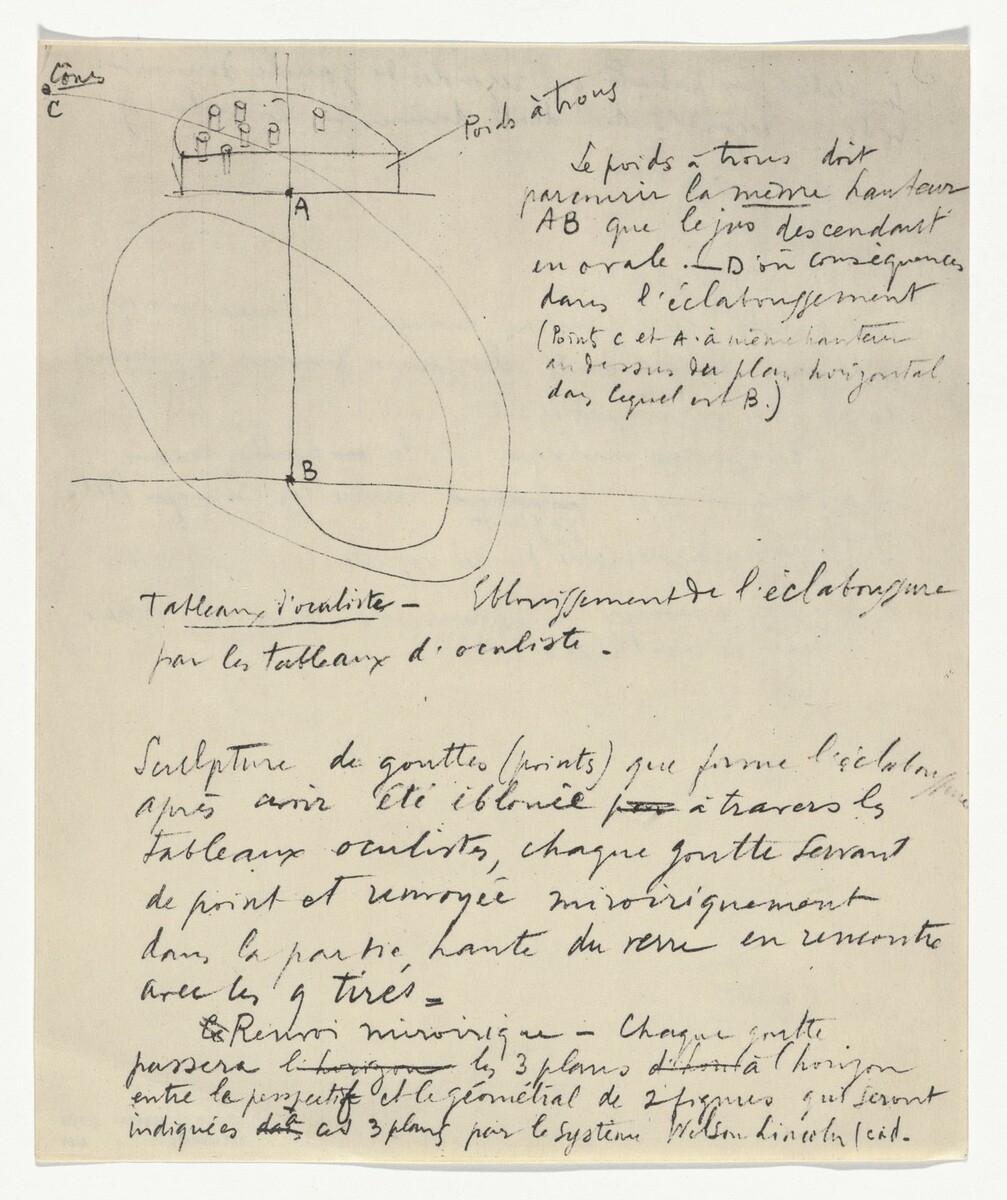 Cônes
C
Poids à trous
A
B
Le poids à trous doit
parcourir la même hauteur
AB que le jus descendant
en ovale. — D'où conséquences
dans l'éclaboussement
(Point C et A à même hauteur
au dessus du plan horizontal
dans lequel est B.)
Tableaux d'oculiste — Eblouissement de l'éclaboussure
par les tableaux d'oculiste.
Sculpture de gouttes (points) que forme l'éclaboussure
après avoir été éblouie par à travers les
tableaux oculistes, chaque goutte servant
de point et renvoyée miroiriquement
dans la partie haute du verre en rencontre
avec les 9 tirés =
Renvoi miroirique — Chaque goutte
passera l'horizon les 3 plans à l'horizon
entre le perspectif et le géométral de 2 figures qui seront
indiquées dans ces 3 plans par le système Wilson Lincoln (càd.